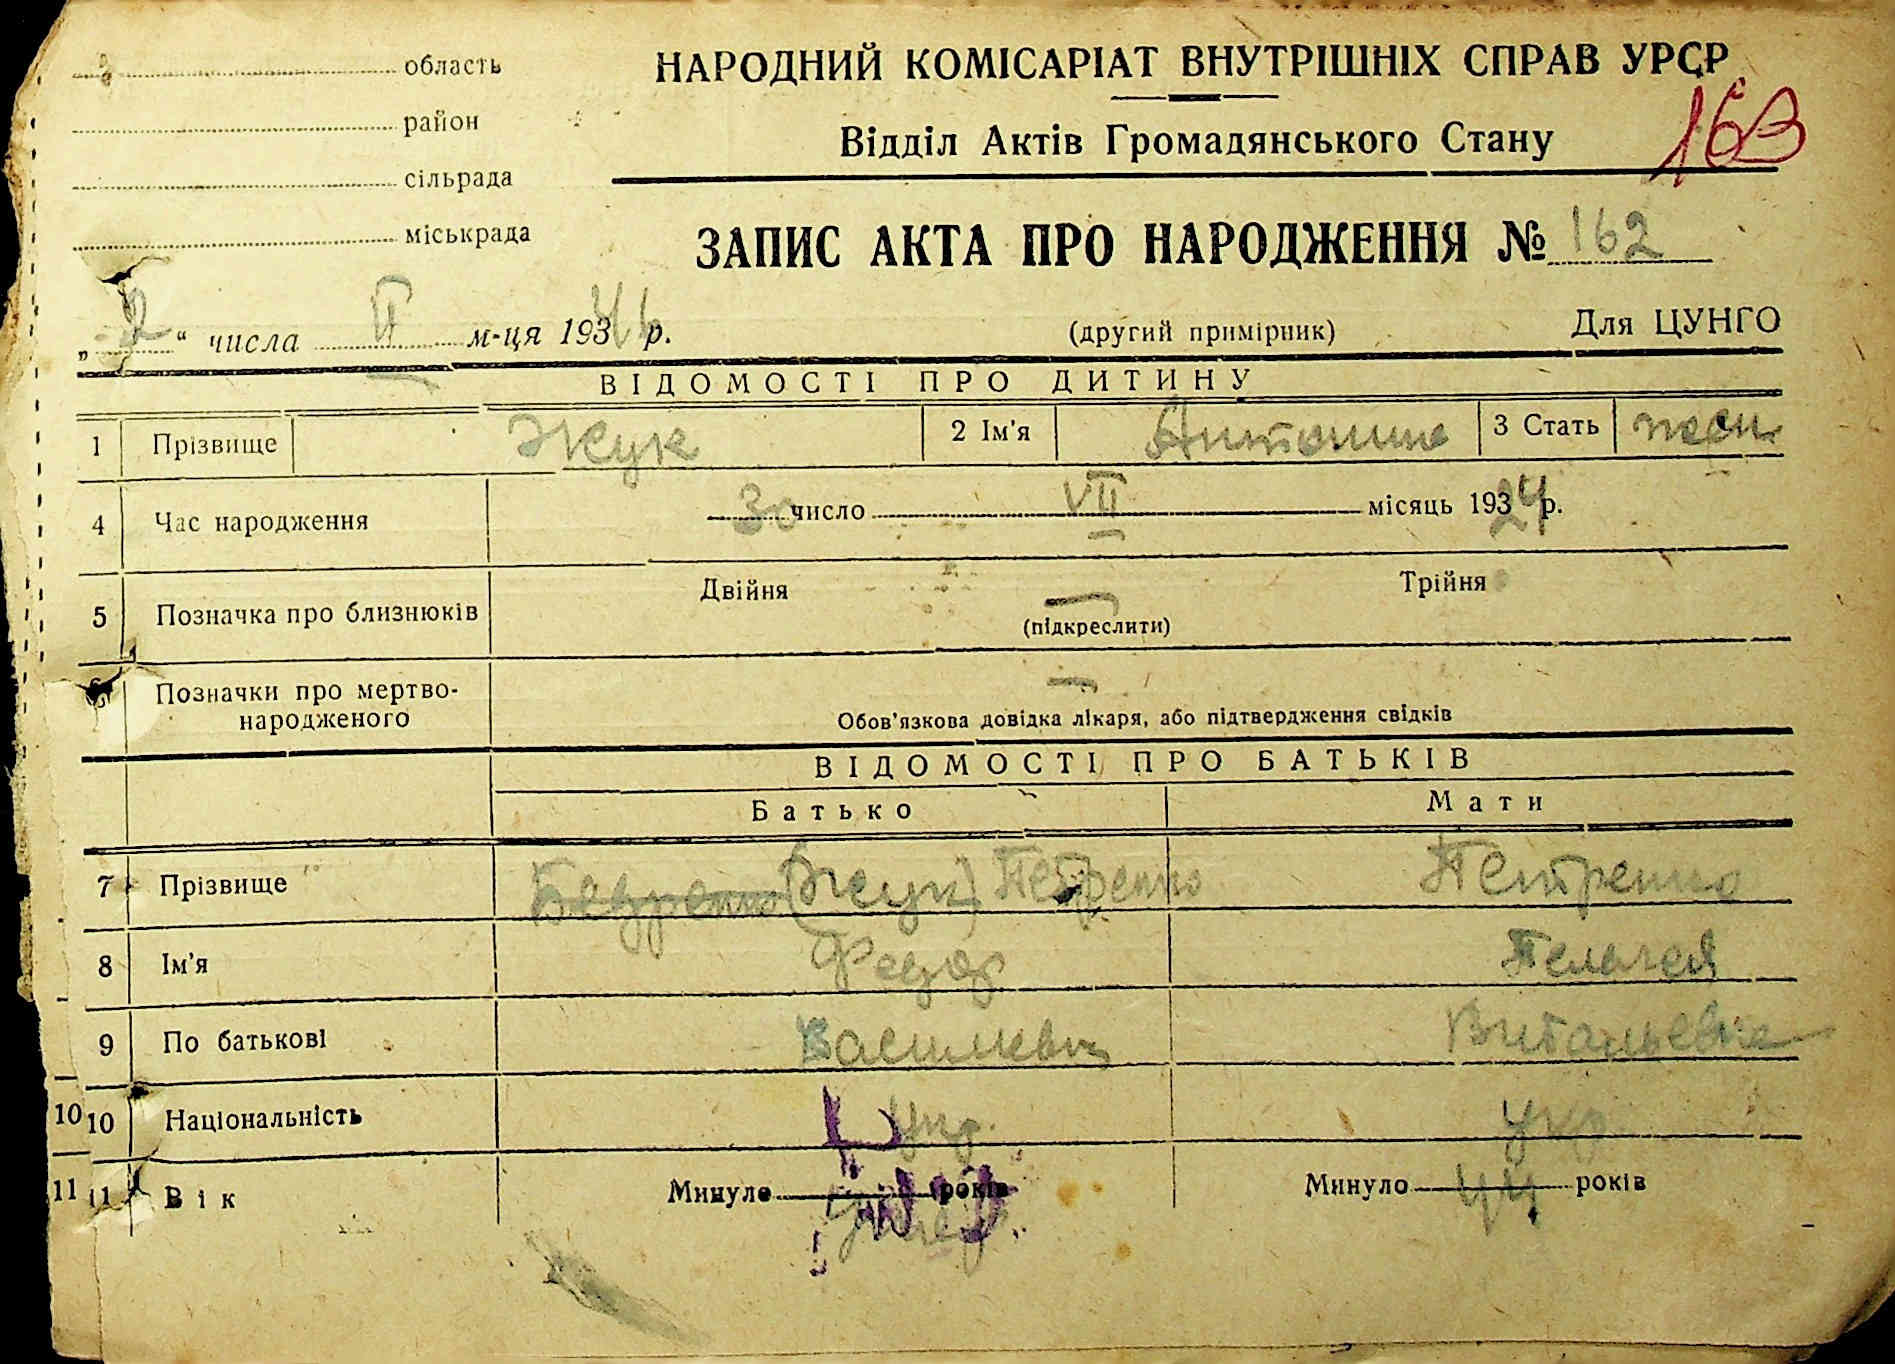 область
НАРОДНИЙ КОМІСАРІАТ ВНУТРІШНІХ СПРАВ УРСР
район
Відділ Актів Громадянського Стану
сільрада
міськрада
ЗАПИС АКТА ПРО НАРОДЖЕННЯ № 162
„2“ числа II м-ця 193 р.
(другий примірник)
Для ЦУНГО
ВІДОМОСТІ ПРО ДИТИНУ
1 Прізвище Жук 2 Ім'я 3 Стать
4 Час народження 30 число VII місяць 19324 р.
5 Позначка про близнюків Двійня — Трійня
(підкреслити)
6 Позначки про мертво-
народженого —
Обов'язкова довідка лікаря, або підтвердження свідків
ВІДОМОСТІ ПРО БАТЬКІВ
Батько Мати
7 Прізвище (Жук) Петренко Петренко
8 Ім'я Федор Пелагея
9 По батькові Василиевич Витальевна
10 10 Національність Укр. Укр
11 11 Вік Минуло років Минуло 44 років